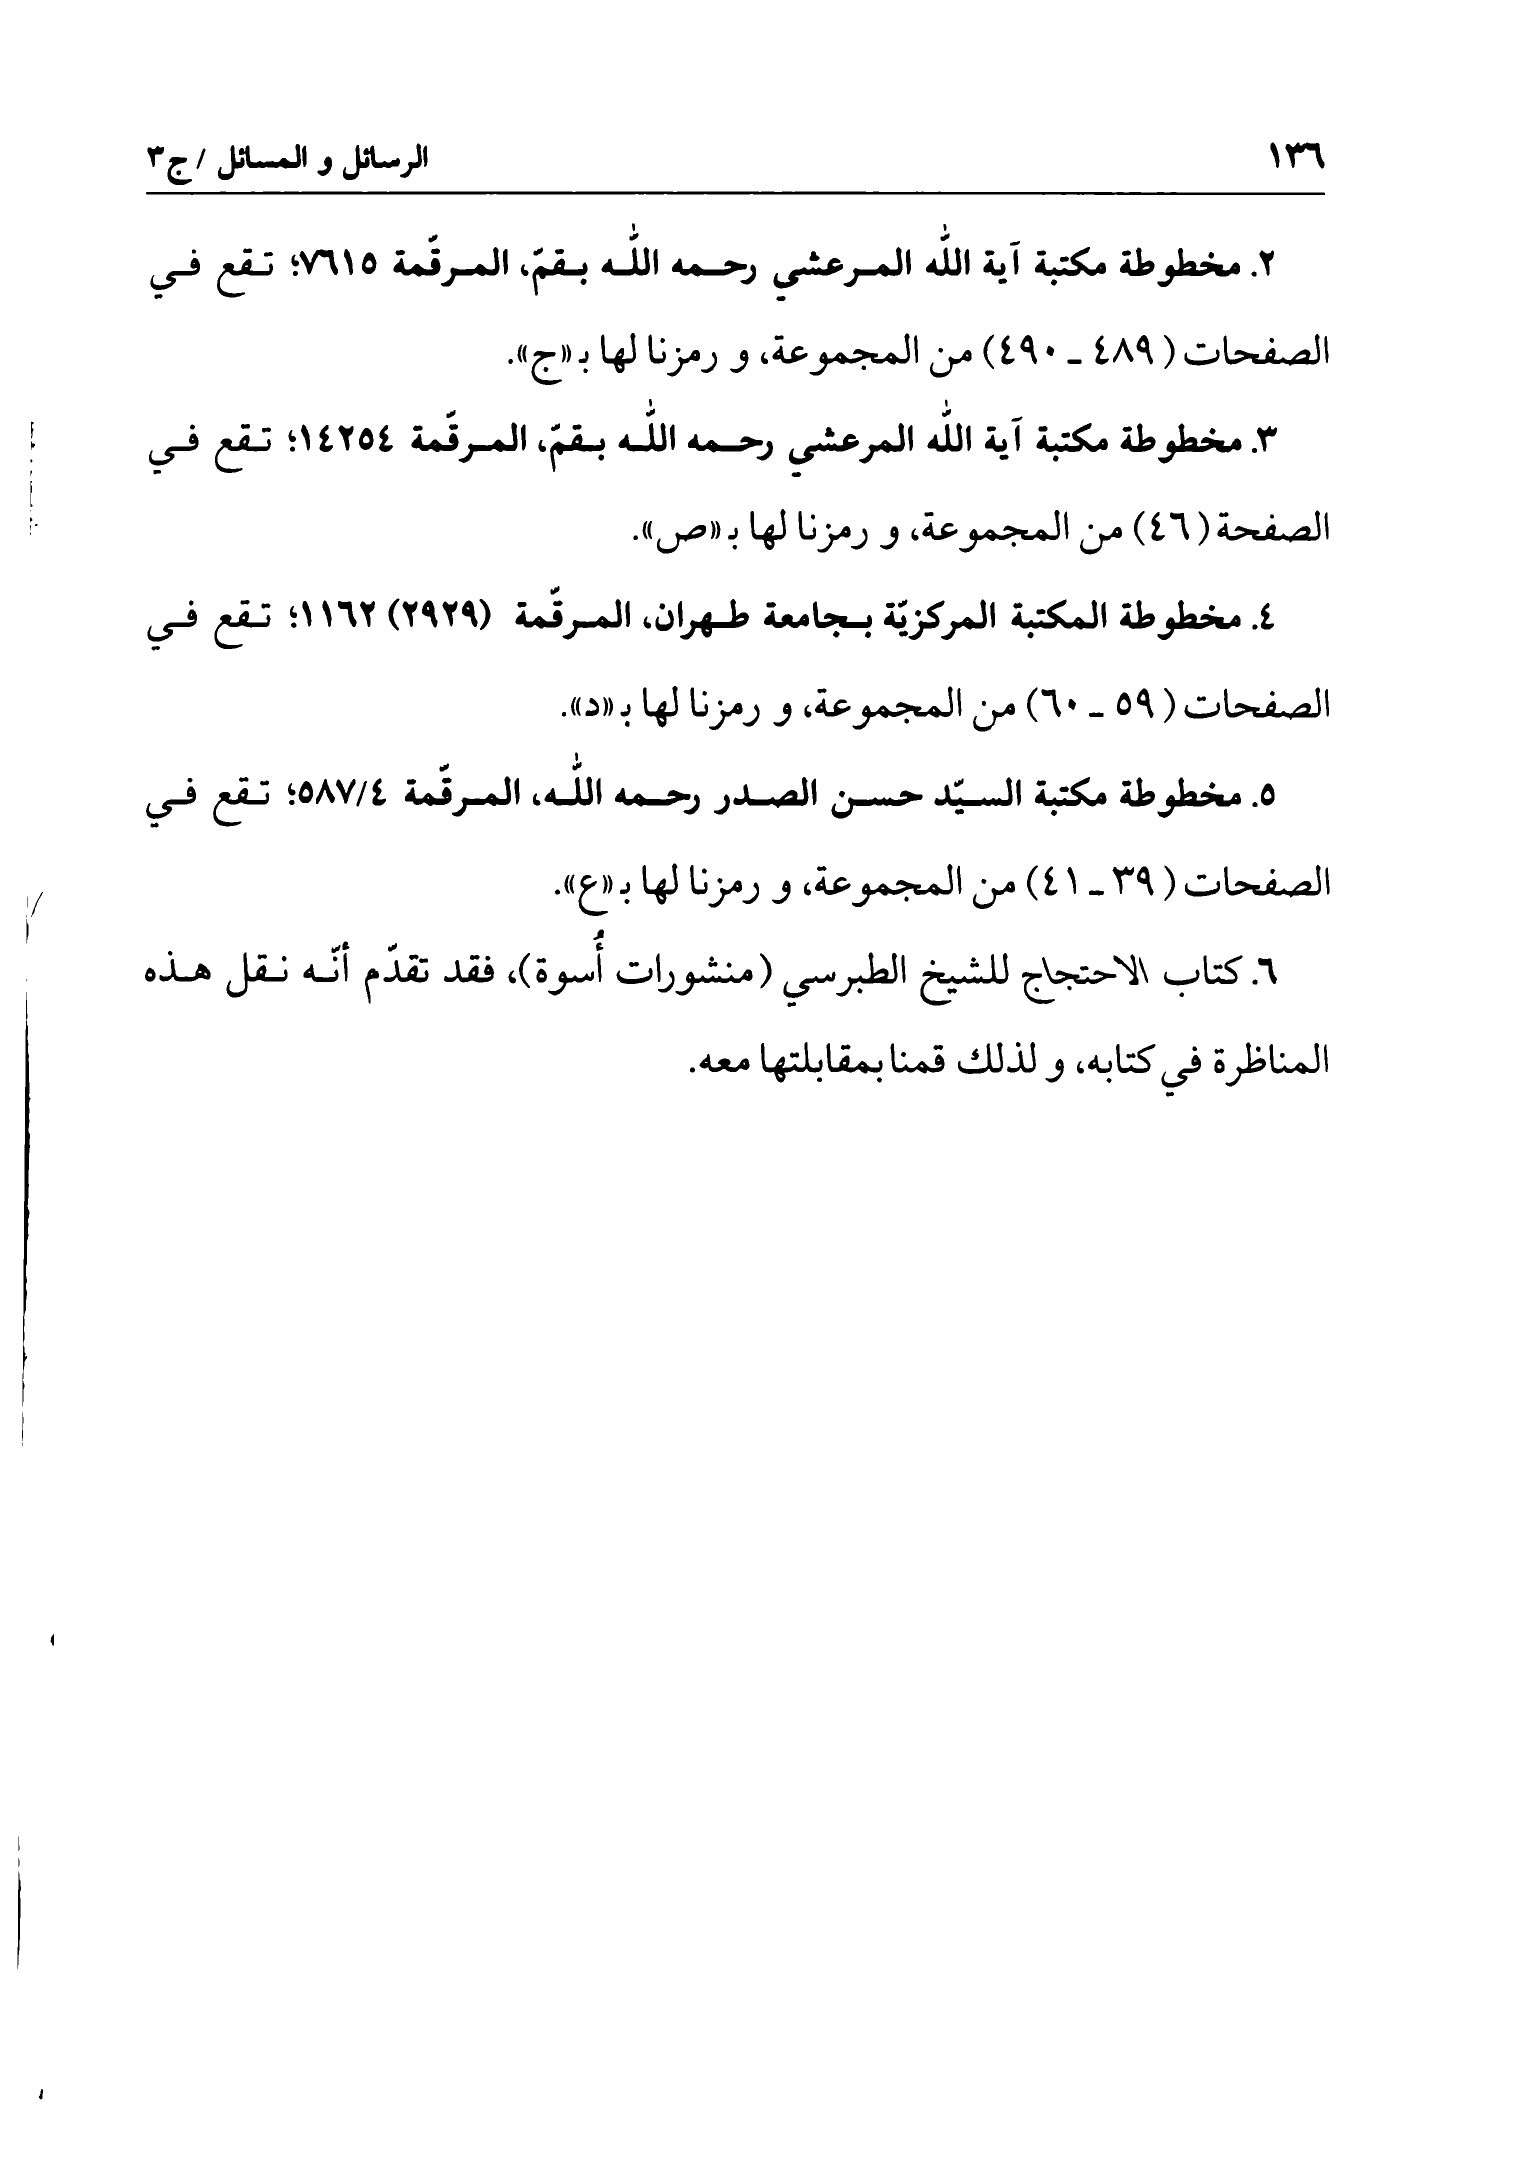 ١٣٦
الرسائل و المسائل / ج٣
٢. مخطوطة مكتبة آية اللّٰه المرعشي رحمه اللّٰه بقمّ، المرقّمة ٧٦١٥؛ تقع في
الصفحات (٤٨٩ ـ ٤٩٠) من المجموعة، و رمزنا لها بـ«ج».
٣. مخطوطة مكتبة آية اللّٰه المرعشي رحمه اللّٰه بقمّ، المرقّمة ١٤٢٥٤؛ تقع في
الصفحة (٤٦) من المجموعة، و رمزنا لها بـ«ص».
٤. مخطوطة المكتبة المركزيّة بجامعة طهران، المرقّمة (٢٩٢٩) ١١٦٢؛ تقع في
الصفحات (٥٩ ـ ٦٠) من المجموعة، و رمزنا لها بـ«د».
٥. مخطوطة مكتبة السيّد حسن الصدر رحمه اللّٰه، المرقّمة ٥٨٧/٤؛ تقع في
الصفحات (٣٩ ـ ٤١) من المجموعة، و رمزنا لها بـ«ع».
٦. كتاب الاحتجاج للشيخ الطبرسي (منشورات أُسوة)، فقد تقدّم أنّه نقل هذه
المناظرة في كتابه، و لذلك قمنا بمقابلتها معه.